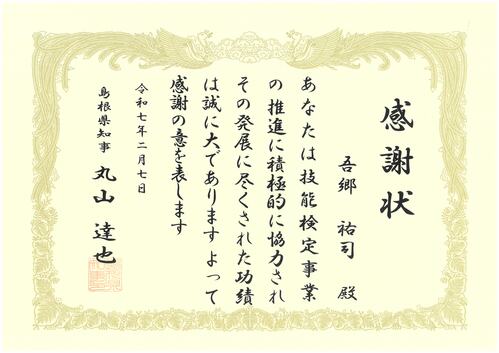 感謝状
吾郷 祐司 殿
あなたは技能検定事業
の推進に積極的に協力され
その発展に尽くされた功績
は誠に大であります よって
感謝の意を表します
令和七年二月七日
島根県知事 丸山 達也